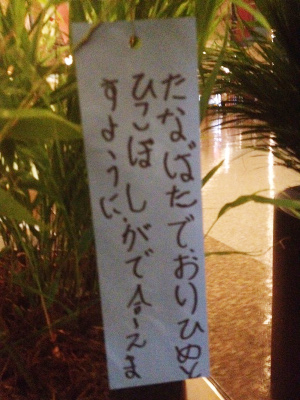 たなばたで、おりひめと
ひこぼしがで合えま
すように、